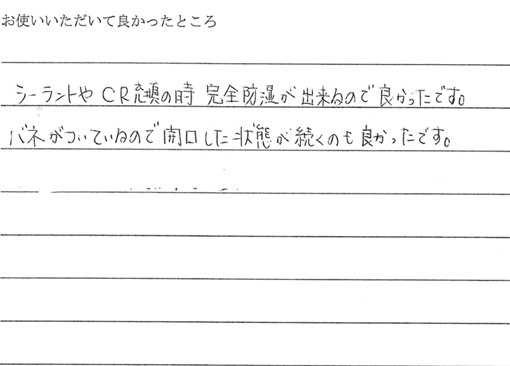 お使いいただいて良かったところ
シーラントや CR充填の時 完全防湿が出来るので良かったです。
バネがついているので開口した状態が続くのも良かったです。